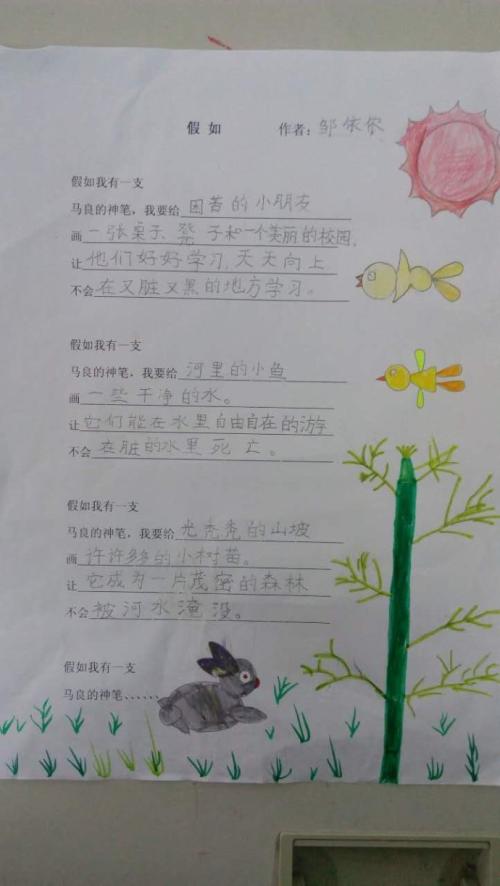 假如 作者：邹依依
假如我有一支
马良的神笔，我要给困苦的小朋友
画一张桌子、凳子和一个美丽的校园，
让他们好好学习，天天向上
不会在又脏又黑的地方学习。
假如我有一支
马良的神笔，我要给河里的小鱼
画一些干净的水。
让它们能在水里自由自在的游
不会在脏的水里死亡。
假如我有一支
马良的神笔，我要给光秃秃的山坡
画许许多的小树苗。
让它成为一片茂密的森林
不会被河水淹没。
假如我有一支
马良的神笔、、、、、、